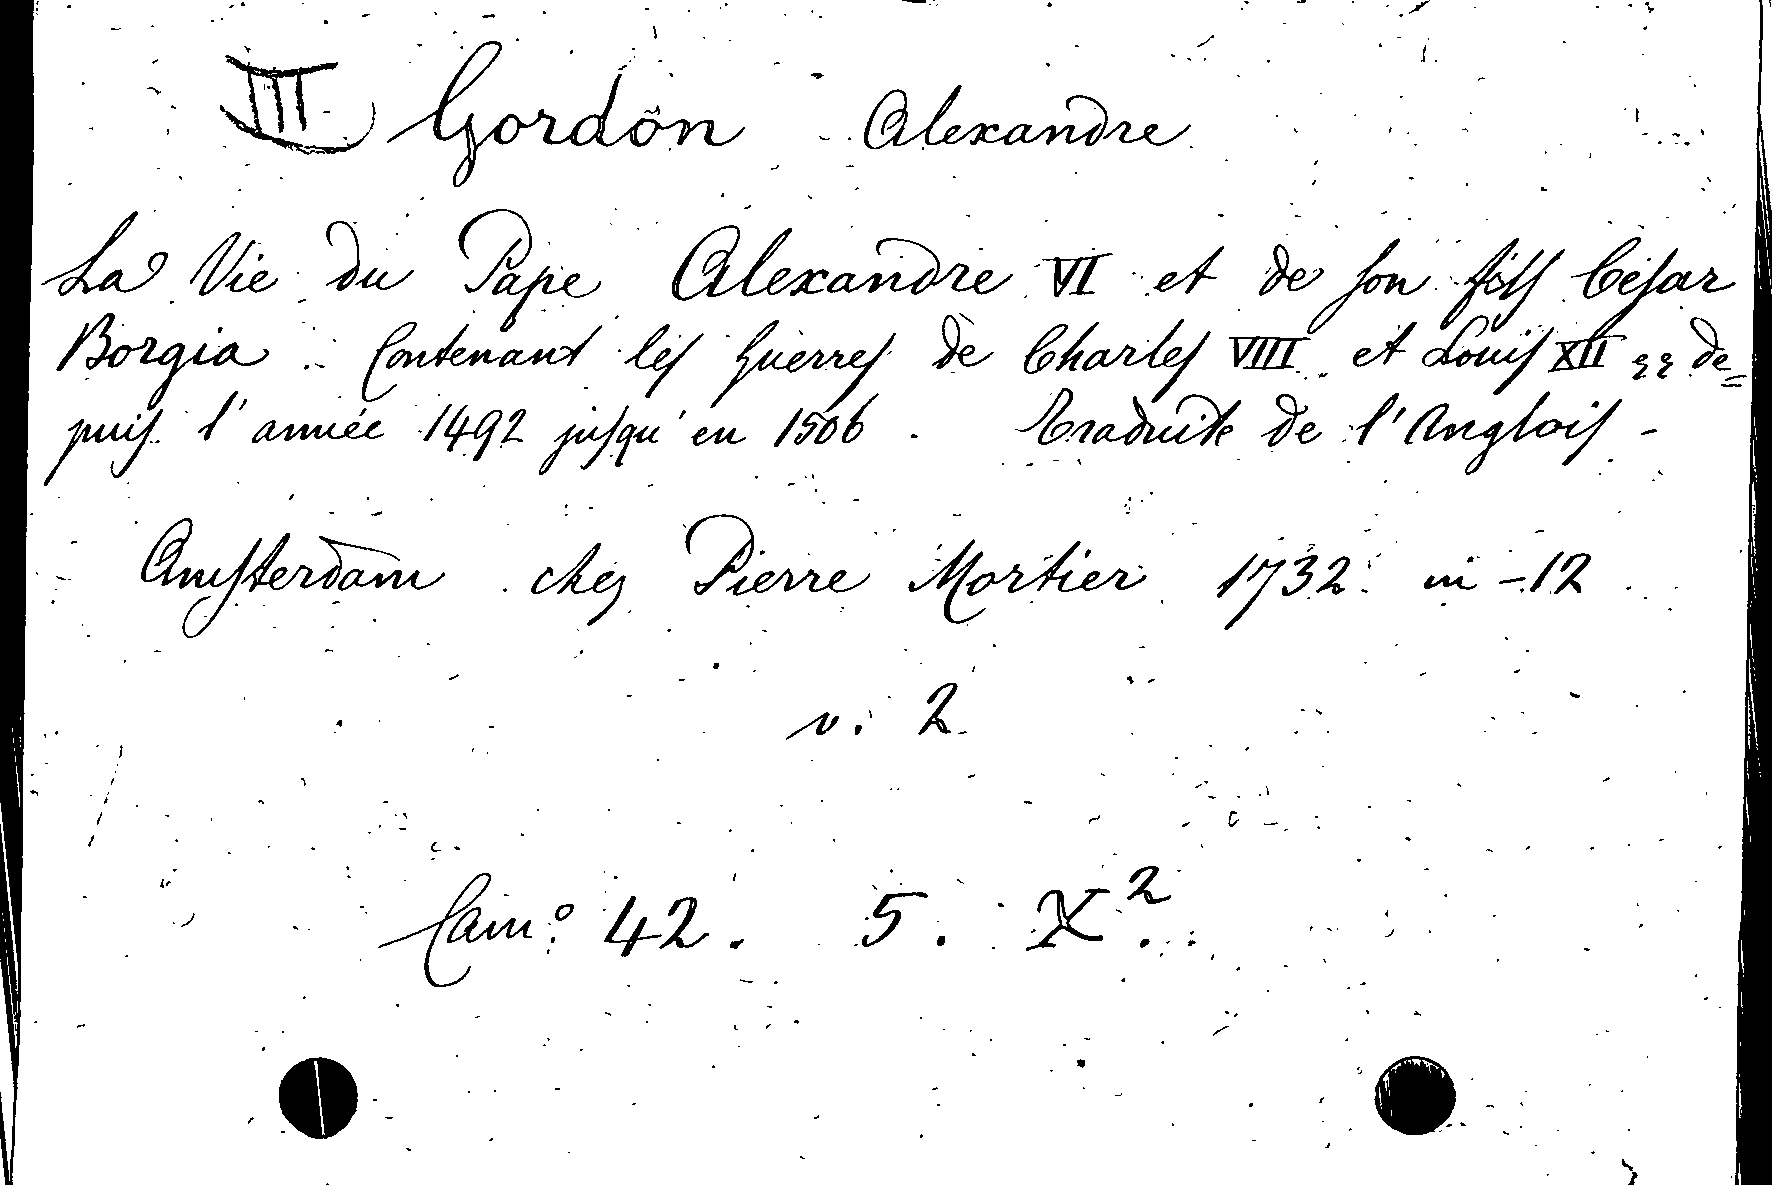 III Gordon Alexandre
La Vie du Pape Alexandre VI et de son fils César
Borgia. Contenant les guerres de Charles VIII et Louis XII && de=
puis l'année 1492 jusqu'en 1506. Traduite de l'Anglois -
Amsterdam chez Pierre Mortier 1732. in -12
v. 2
Cam.° 42. 5. X².